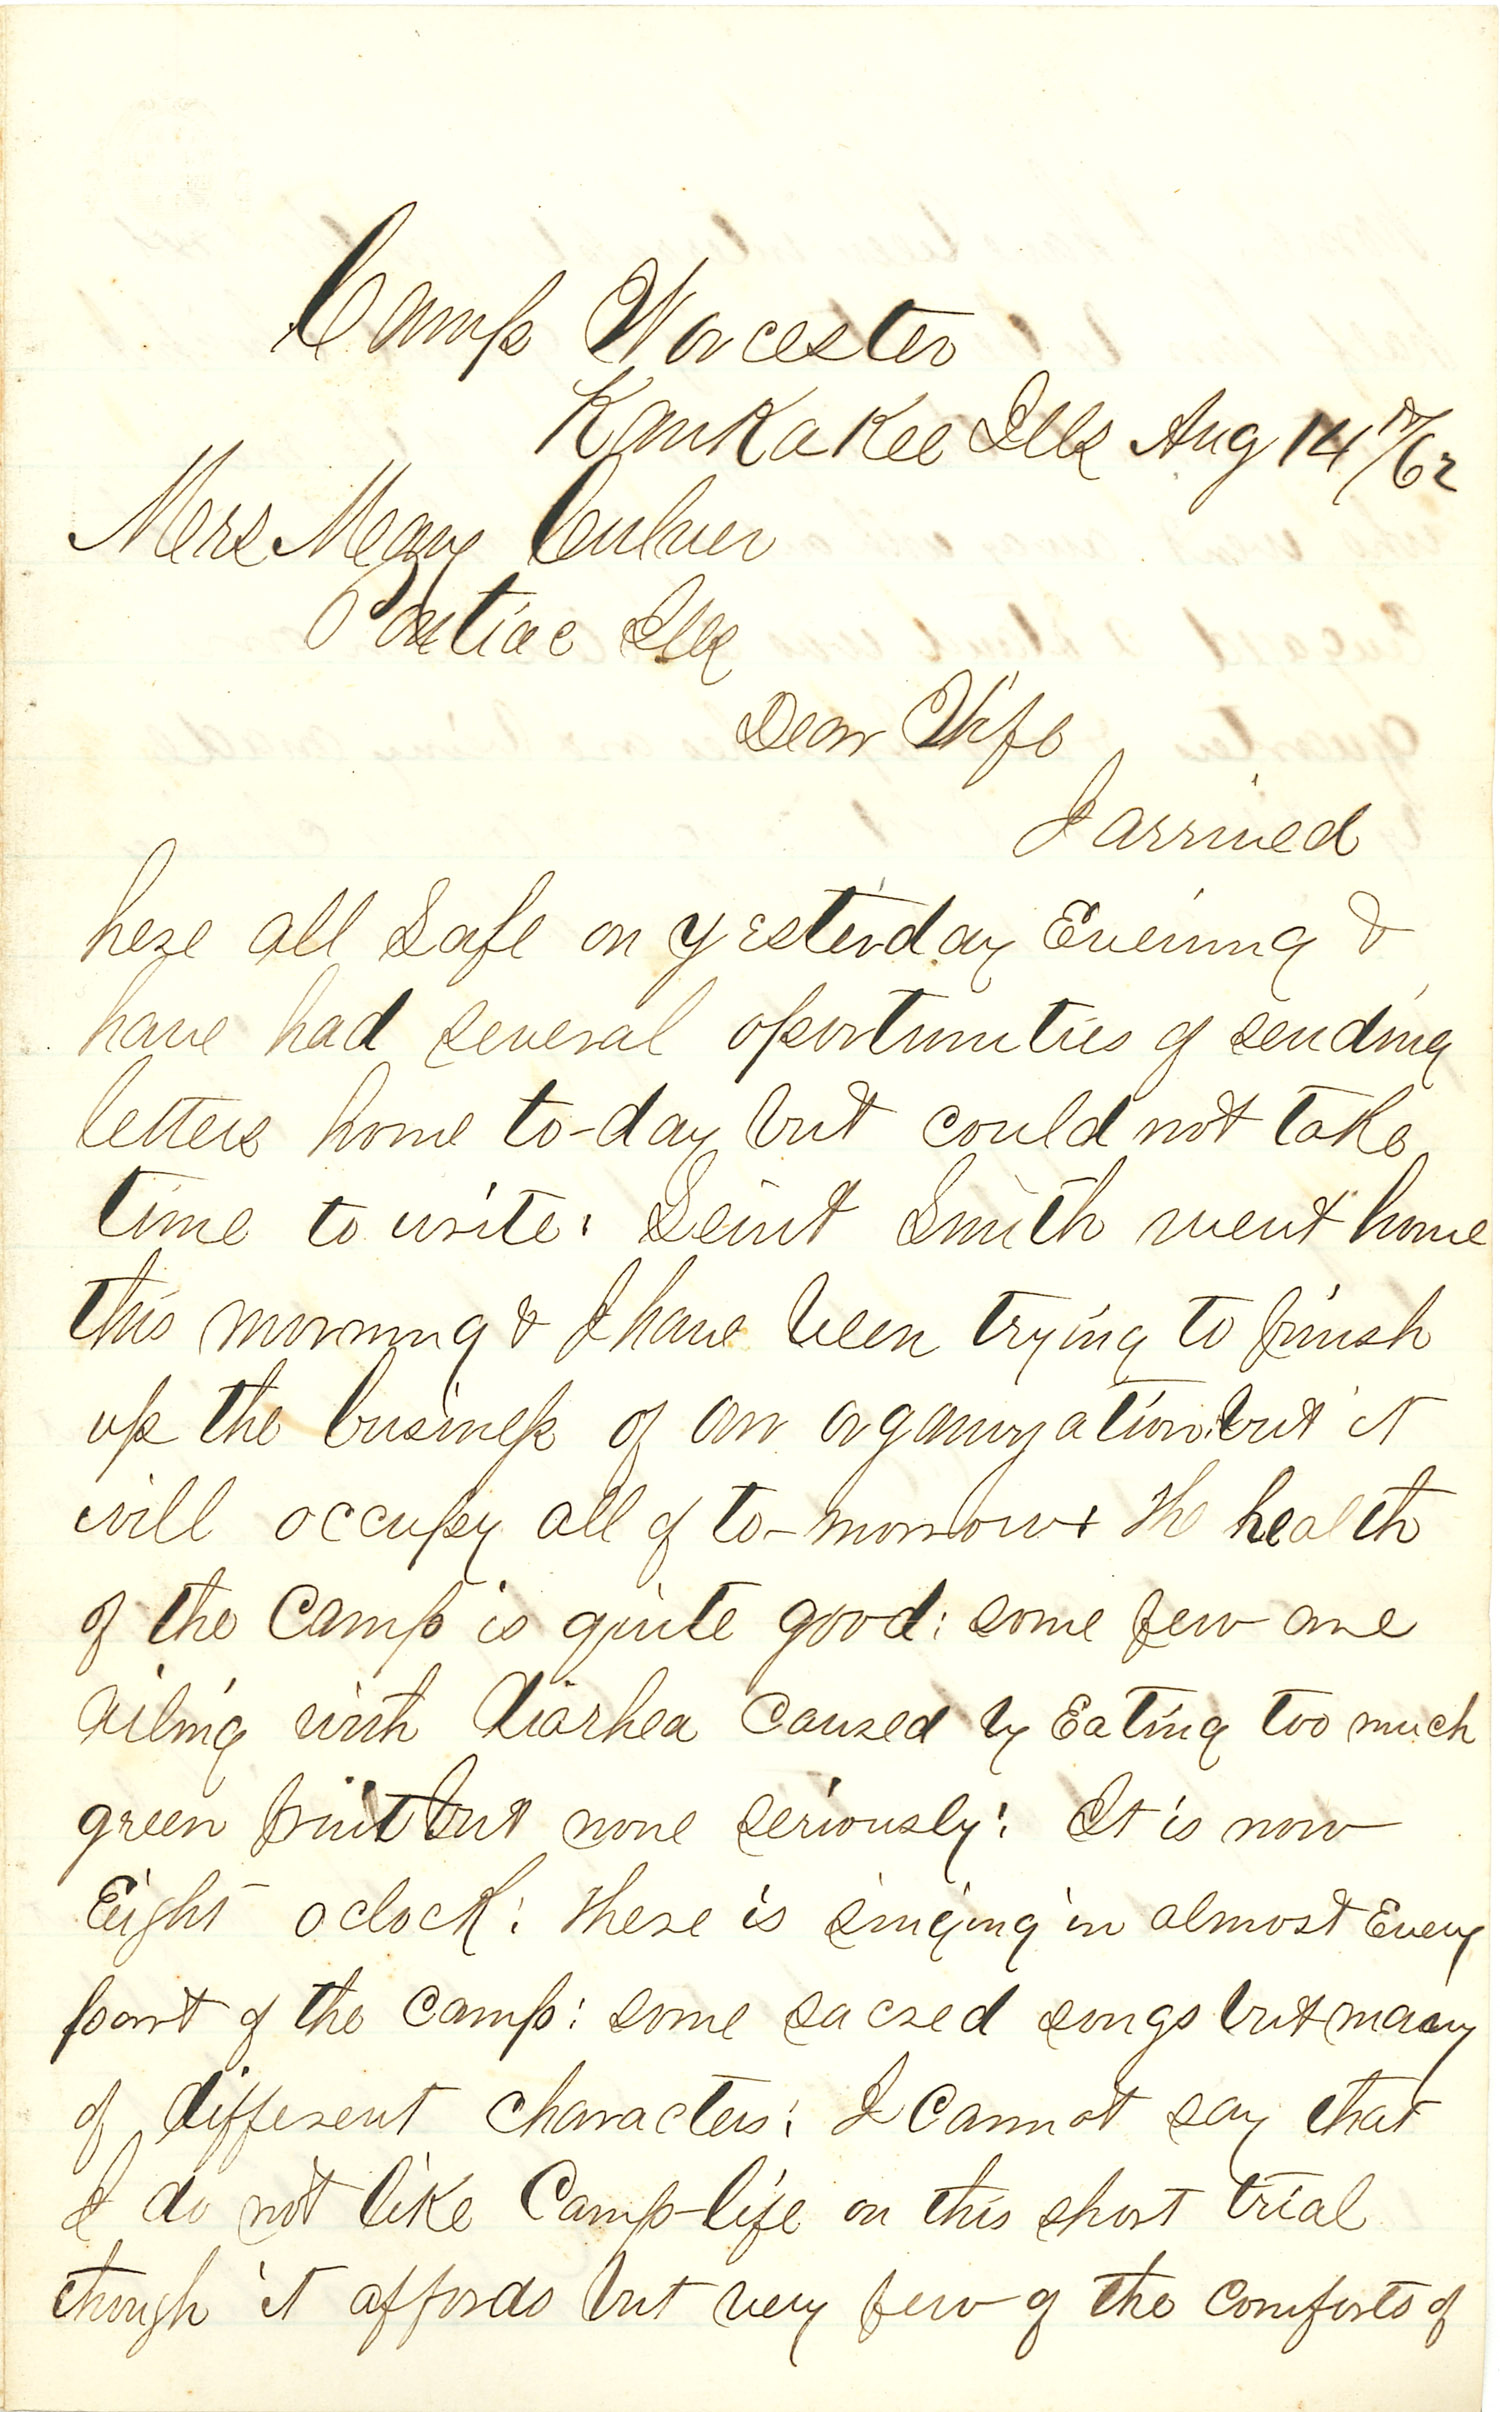 Camp Worcester
Kankakee Ills Aug 14th/62
Mrs Mary Culver
Pontiac Ills
Dear Wife
I arrived
here all safe on yesterday Evening &
have had several oportunities of sending
letters home to-day but could not take
time to write: Leiut Smith went home
this morning & I have been trying to finish
up the business of an organization: but it
will occupy all of to-morrow + The health
of the Camp is quite good: some few are
Ailing with Diarhea caused by Eating too much
green fruit but none seriously: It is now
Eight oclock: there is singing in almost Every
part of the camp: some sacred songs but many
of different characters: I cannot say that
I do not like Camp-life on this short trial
though it affords but very few of the comforts of